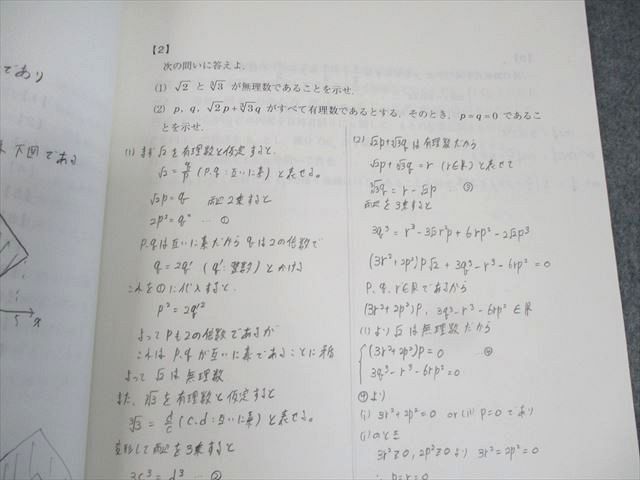 であり
下図である
5 x
【2】
次の問いに答えよ.
(1) √2 と ∛3 が無理数であることを示せ.
(2) p, q, √2p+∛3q がすべて有理数であるとする. そのとき, p=q=0 であるこ
とを示せ.
(1) まず√2を有理数と仮定すると.
√2 = q/p (p.q:互いに素) と表せる。
√2p = q 両辺2乗すると
2p² = q² … ①
p.qは互いに素だから qは2の倍数で
q = 2q' (q':整数) とかける
これを①に代入すると.
p² = 2q'²
よって pも2の倍数であるが
これは p.q が互いに素であることに矛盾
よって √2は無理数
また, ∛3を有理数と仮定すると
∛3 = d/c (c.d:互いに素) と表せる。
変形して両辺を3乗すると
3c³ = d³ … ②
(2) √2p+∛3q は有理数だから
√2p+∛3q = r (r∈R) と表せて
∛3q = r - √2p ③
両辺を3乗すると
3q³ = r³ - 3√2r²p + 6rp² - 2√2p³
(3r²+2p²)p√2 + 3q³ - r³ - 6rp² = 0
p, q, r∈R であるから
(3r²+2p²)p, 3q³ - r³ - 6rp² ∈ R
(1)より √2 は無理数だから
(3r²+2p²)p = 0 ④
3q³ - r³ - 6rp² = 0
④より
(i) 3r²+2p² = 0 or (ii) p=0 であり
(i)のとき
3r²≧0, 2p²≧0より 3r² = 2p² = 0
∴ p = r = 0